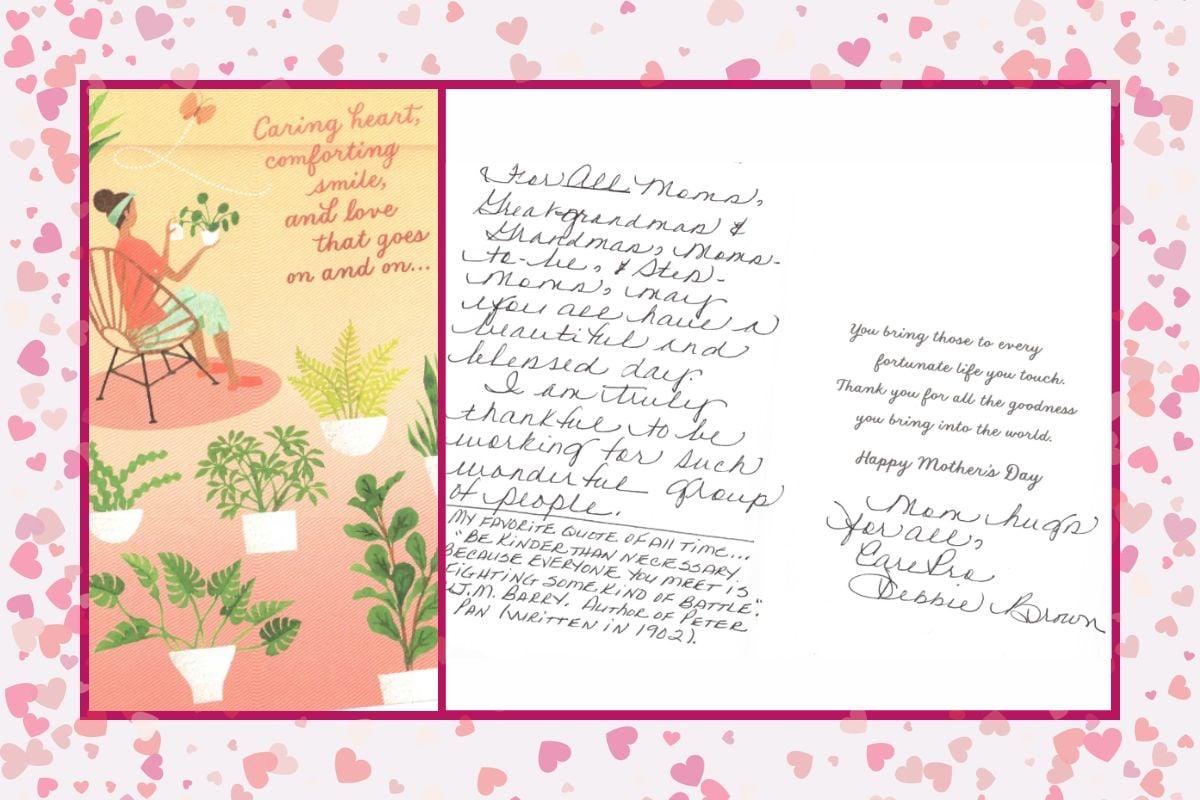 Caring heart,
comforting
smile,
and love
that goes
on and on...
For All Moms,
Great-grandmas &
Grandmas, Moms-
to-be, & Step-
Moms, may
you all have a
beautiful and
blessed day.
I am truly
thankful to be
working for such
wonderful group
of people.
MY FAVORITE QUOTE OF ALL TIME...
"BE KINDER THAN NECESSARY.
BECAUSE EVERYONE YOU MEET IS
FIGHTING SOME KIND OF BATTLE."
J.M. BARRY. AUTHOR OF PETER
PAN (WRITTEN IN 1902).
You bring those to every
fortunate life you touch.
Thank you for all the goodness
you bring into the world.
Happy Mother's Day
Mom hugs
for all,
CarePro
Debbie Brown